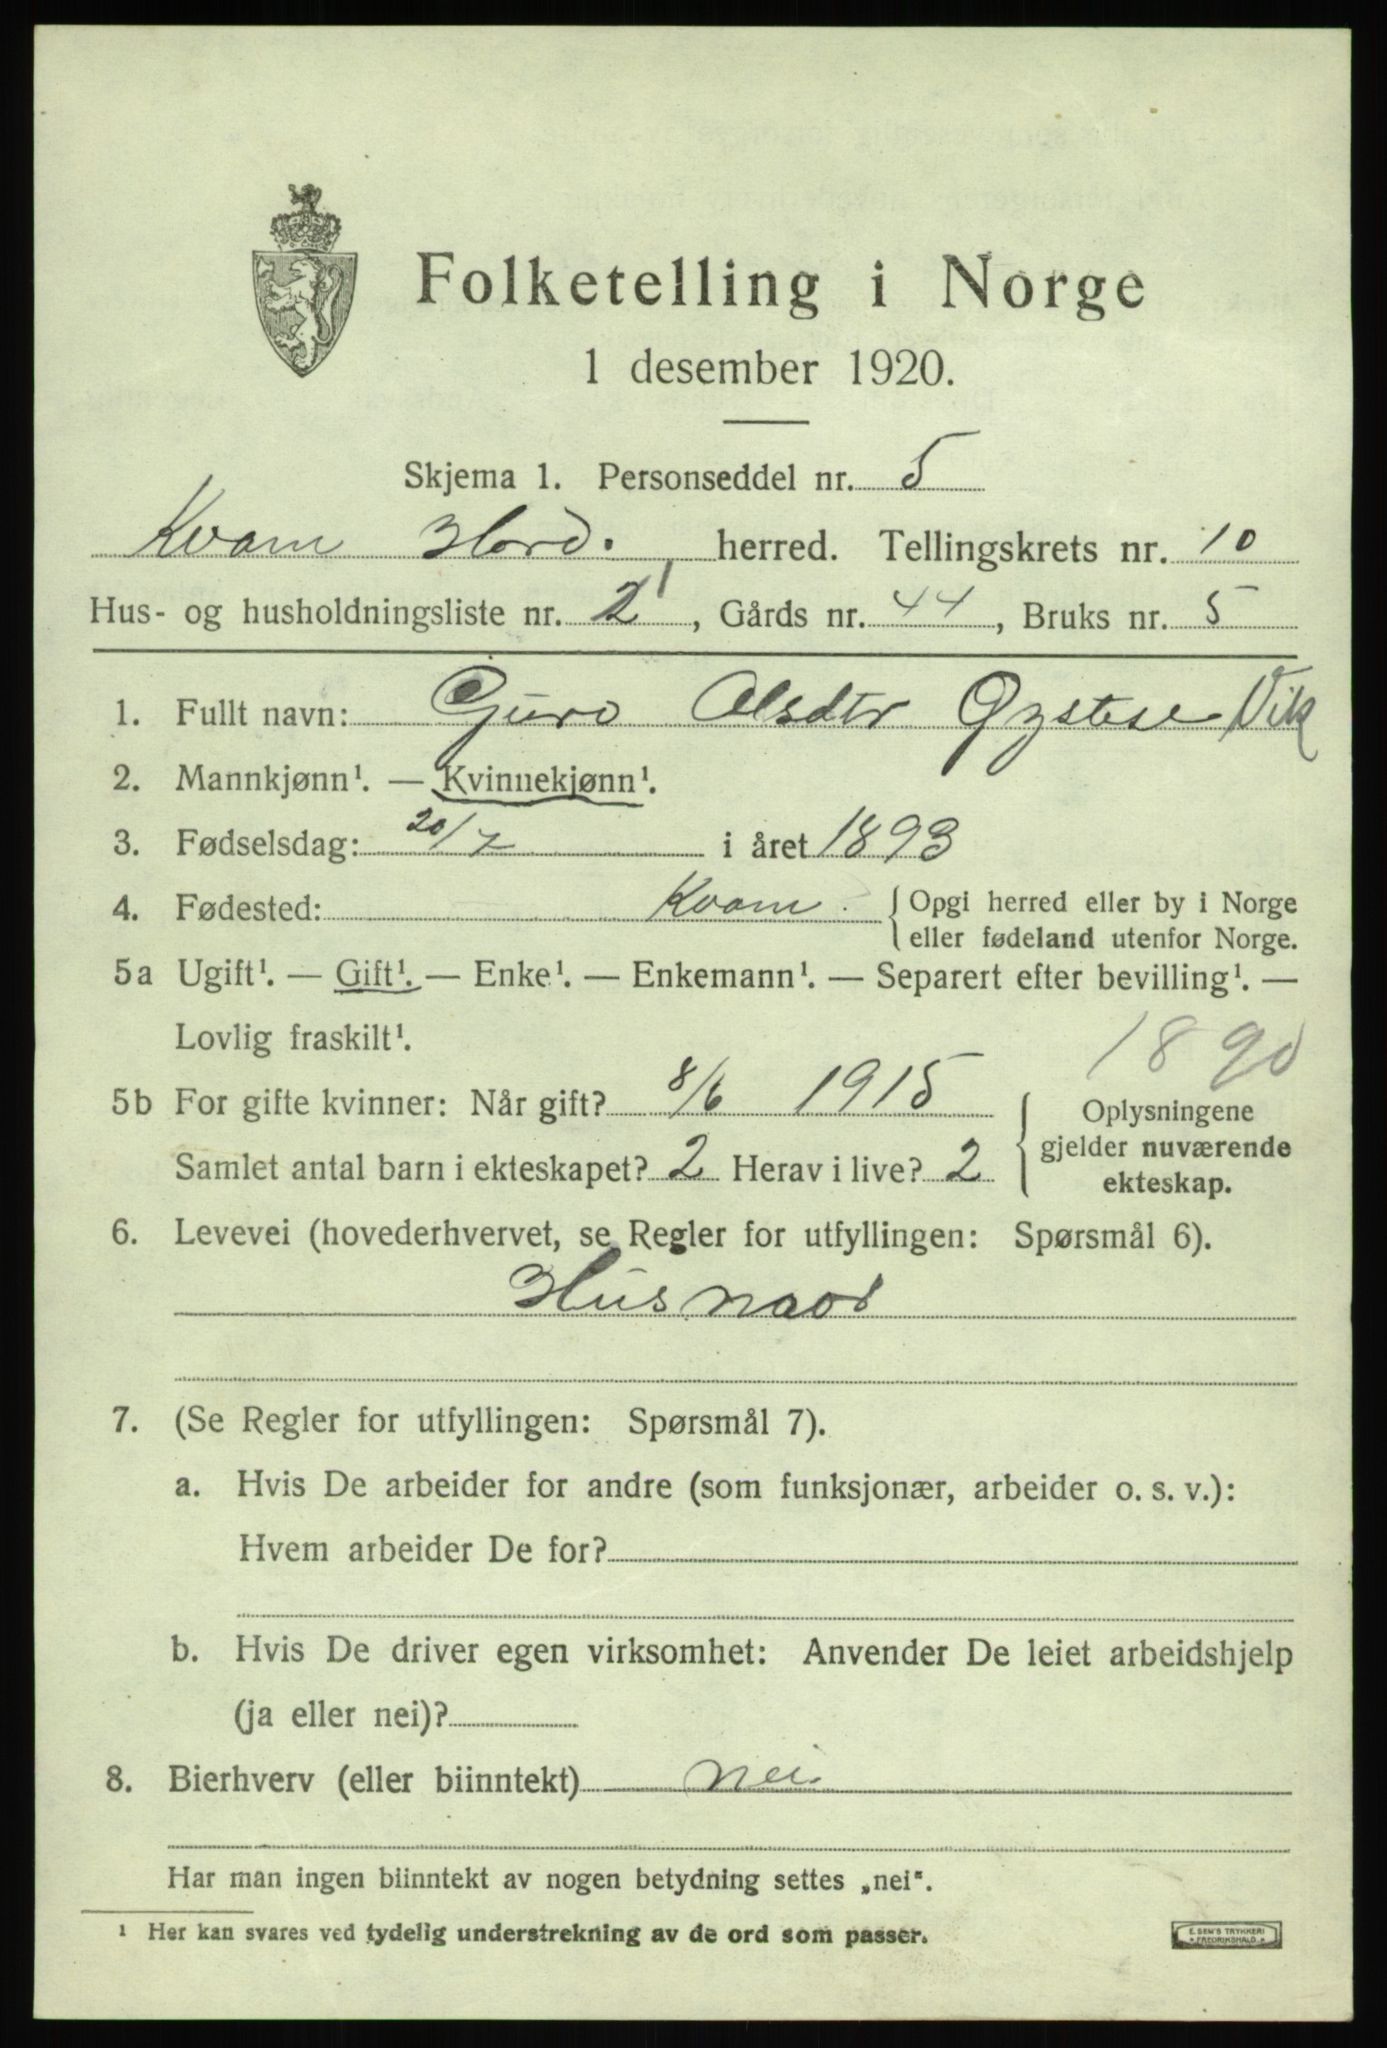 Folketelling i Norge
1 desember 1920.
Skjema 1. Personseddel nr. 5
Kvam Hord. herred. Tellingskrets nr. 10
Hus- og husholdningsliste nr. 21, Gårds nr. 44, Bruks nr. 5
1. Fullt navn: Guro Olsdtr Øystese Vik
2. Mannkjønn¹. — Kvinnekjønn¹.
3. Fødselsdag: 20/7 i året 1893
4. Fødested: Kvam. { Opgi herred eller by i Norge
eller fødeland utenfor Norge.
5a Ugift¹. — Gift¹. — Enke¹. — Enkemann¹. — Separert efter bevilling¹. —
Lovlig fraskilt¹.
1890
5b For gifte kvinner: Når gift? 8/6 1915
Samlet antal barn i ekteskapet? 2 Herav i live? 2
Oplysningene
gjelder nuværende
ekteskap.
6. Levevei (hovederhvervet, se Regler for utfyllingen: Spørsmål 6).
Husmoor
7. (Se Regler for utfyllingen: Spørsmål 7).
a. Hvis De arbeider for andre (som funksjonær, arbeider o. s. v.):
Hvem arbeider De for?
b. Hvis De driver egen virksomhet: Anvender De leiet arbeidshjelp
(ja eller nei)?
8. Bierhverv (eller biinntekt) nei
Har man ingen biinntekt av nogen betydning settes „nei".
¹ Her kan svares ved tydelig understrekning av de ord som passer.
E. SEM'S TRYKKERI
FREDRIKSHALD